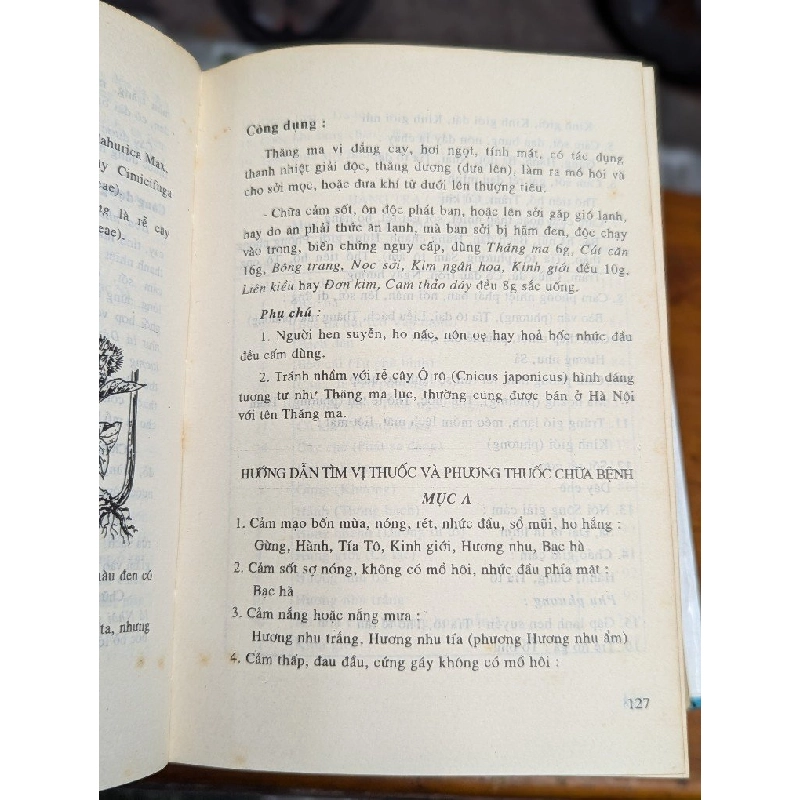 ahurica Max.
y Cimicifuga
eae).
ng là rễ cây
eae).
àu đen có
ta, nhưng
Công dụng :
Thăng ma vị đắng cay, hơi ngọt, tính mát, có tác dụng
thanh nhiệt giải độc, thăng dương (đưa lên), làm ra mồ hôi và
cho sởi mọc, hoặc đưa khí từ dưới lên thượng tiêu.
- Chữa cảm sốt, ôn độc phát ban, hoặc lên sởi gặp gió lạnh,
hay do ăn phải thức ăn lạnh, mà ban sởi bị hãm đen, độc chạy
vào trong, biến chứng nguy cấp, dùng Thăng ma 6g, Cát căn
16g, Bông trang, Nọc sởi, Kim ngân hoa, Kinh giới đều 10g.
Liên kiều hay Đơn kim, Cam thảo dây đều 8g sắc uống.
Phụ chú :
1. Người hen suyễn, ho nấc, nôn ọe hay hoả bốc nhức đầu
đều cấm dùng.
2. Tránh nhầm với rễ cây Ô rô (Cnicus japonicus) hình dáng
tương tự như Thăng ma lục, thường cũng được bán ở Hà Nội
với tên Thăng ma.
HƯỚNG DẪN TÌM VỊ THUỐC VÀ PHƯƠNG THUỐC CHỮA BỆNH
MỤC A
1. Cảm mạo bốn mùa, nóng, rét, nhức đầu, sổ mũi, ho hắng :
Gừng, Hành, Tía Tô, Kinh giới, Hương nhu, Bạc hà
2. Cảm sốt sợ nóng, không có mồ hôi, nhức đầu phía mặt :
Bạc hà
3. Cảm nắng hoặc nắng mưa :
Hương nhu trắng, Hương nhu tía (phương Hương nhu ẩm)
4. Cảm thấp, đau đầu, cứng gáy không có mồ hôi :
127